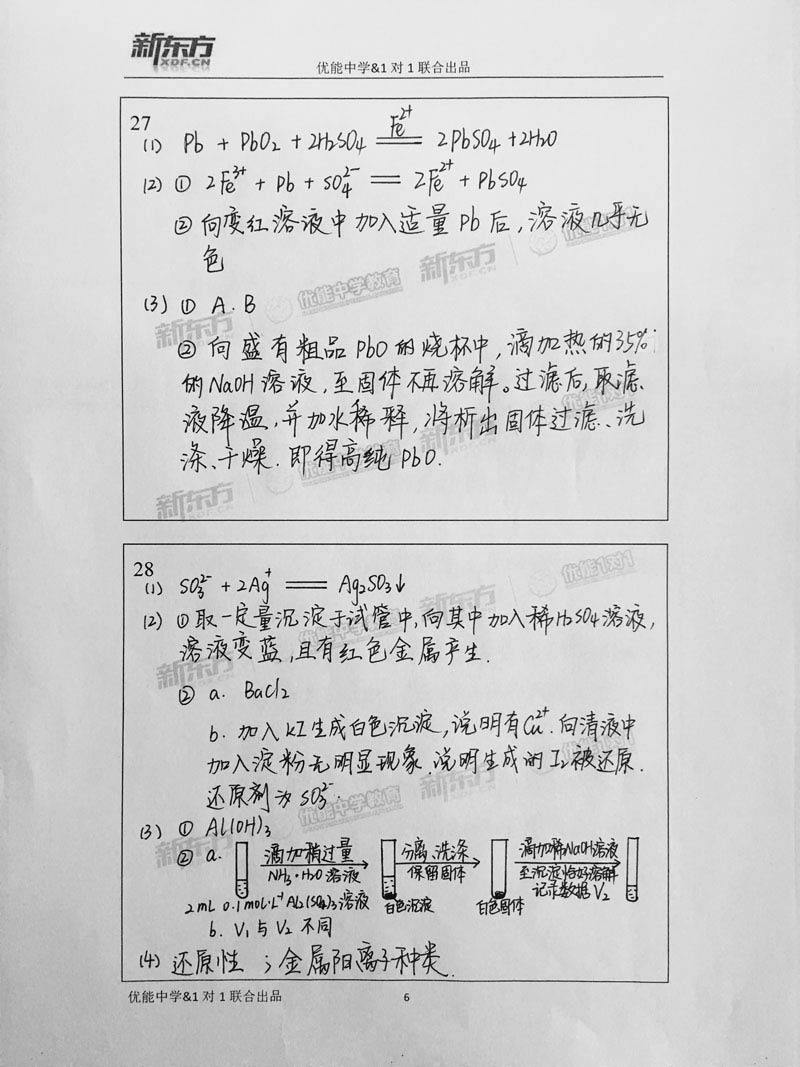 新东方
XDF.CN
优能中学&1 对 1 联合出品
27
(1) Pb + PbO₂ + 2H₂SO₄ ══ 2PbSO₄ + 2H₂O
Fe²⁺
(2) ① 2Fe³⁺ + Pb + SO₄²⁻ ══ 2Fe²⁺ + PbSO₄
② 向变红溶液中加入适量 Pb 后,溶液几乎无
色
(3) ① A. B
② 向盛有粗品 PbO 的烧杯中,滴加热的35%
的NaOH溶液,至固体不再溶解。过滤后,取滤
液降温,并加水稀释,将析出固体过滤、洗
涤、干燥.即得高纯PbO.
28
(1) SO₃²⁻ + 2Ag⁺ ══ Ag₂SO₃↓
(2) ①取一定量沉淀于试管中,向其中加入稀H₂SO₄溶液,
溶液变蓝,且有红色金属产生.
② a. BaCl₂
b. 加入KI生成白色沉淀,说明有Cu²⁺.向清液中
加入淀粉无明显现象.说明生成的I₂被还原.
还原剂为SO₃²⁻.
(3) ① Al(OH)₃
② a. 滴加稍过量 分离、洗涤 滴加稀NaOH溶液
NH₃·H₂O溶液 保留固体 至沉淀恰好溶解
记录数据V₂
2mL 0.1mol·L⁻¹Al₂(SO₄)₃溶液 白色沉淀 白色固体
b. V₁与V₂不同
(4) 还原性 ; 金属阳离子种类.
优能中学&1 对 1 联合出品
6
新东方 XDF.CN 优能中学教育
优能1对1